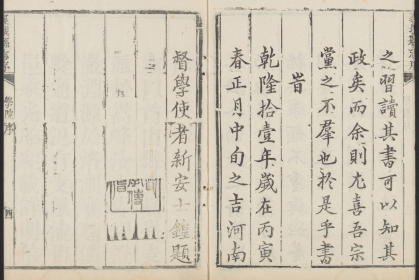 之習讀其書可以知其
政矣而余則尤喜吾宗
黨之不羣也於是乎書
旹
乾隆拾壹年歲在丙寅
春正月中旬之吉河南
督學使者新安士鐘題
四